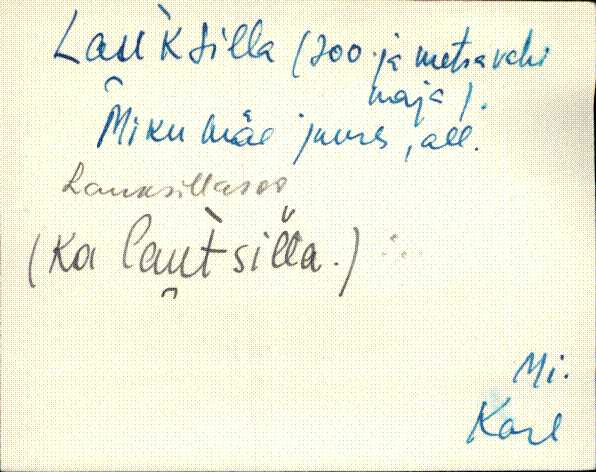 Lauk̀silla (soo ja metsavahi
maja).
Mikumäe juures, all.
Lauksillasoo
(ka laut̀silla.)
Mi.
Karl